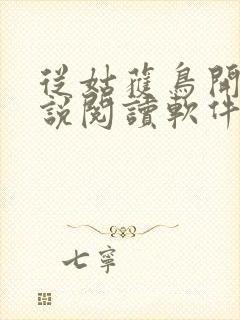 從姑蘿鳥開
說閱讀軟件
七寧